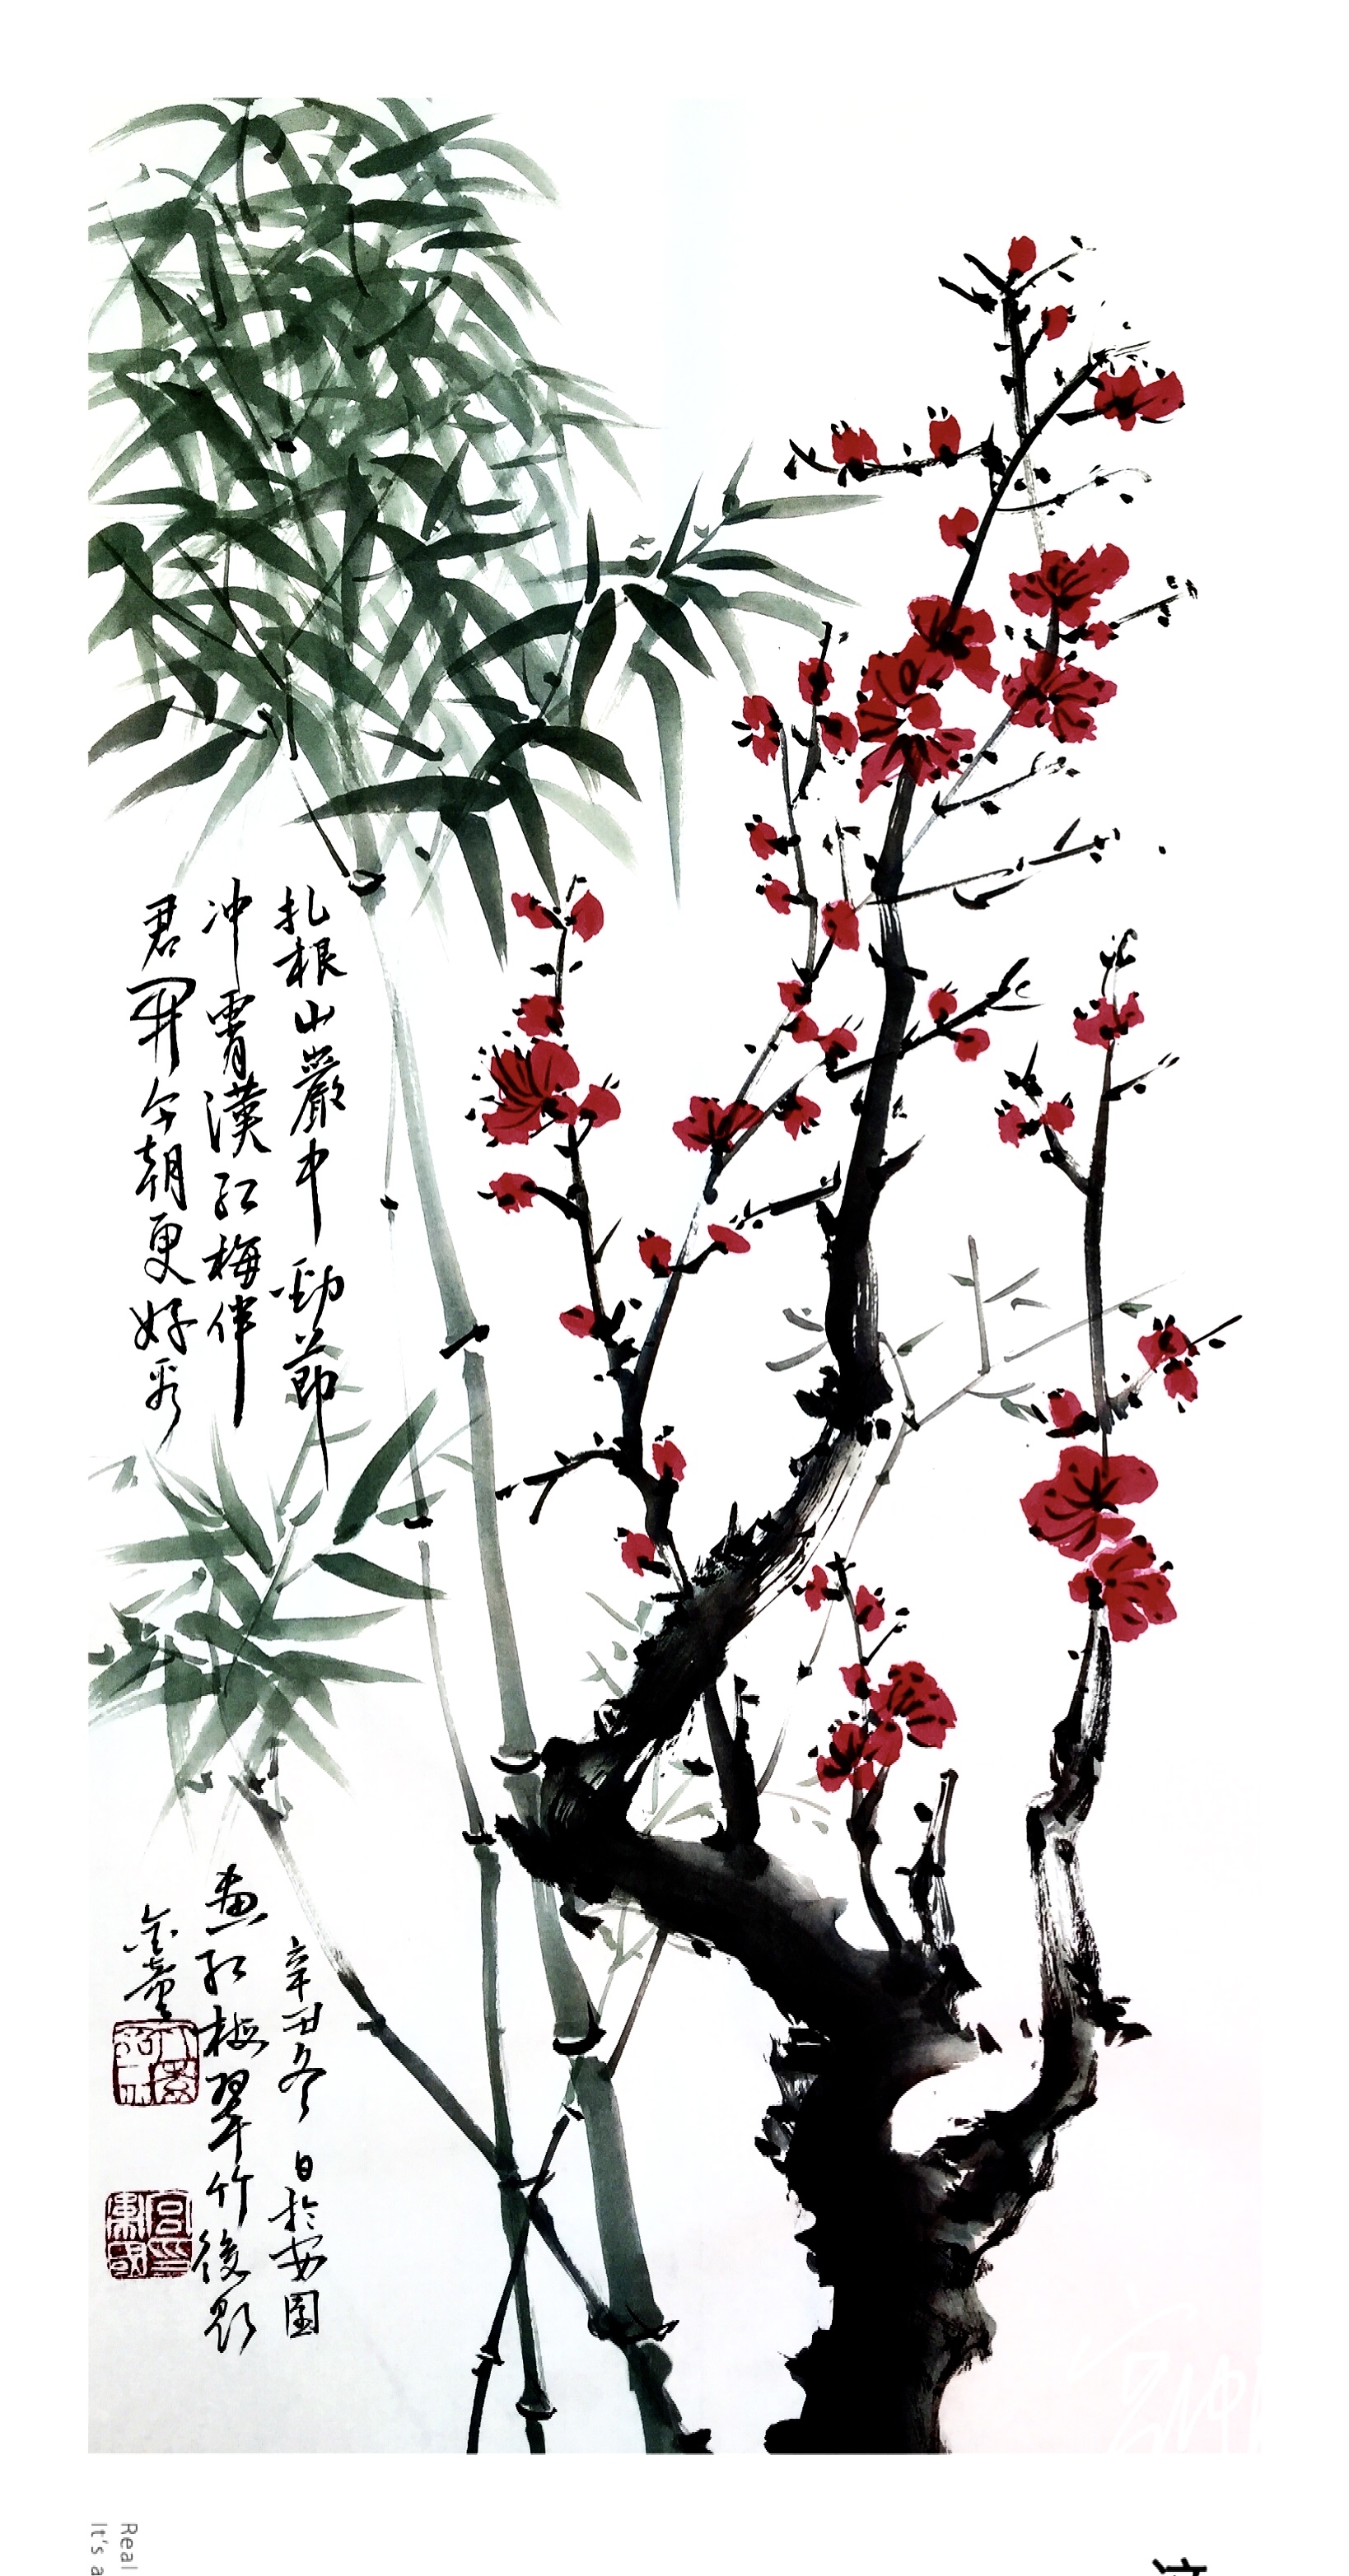 扎根山巖中 勁節
冲霄漢红梅伴
君開今朝更好看
辛丑冬日於安園
畫红梅翠竹後題
Real
It's a